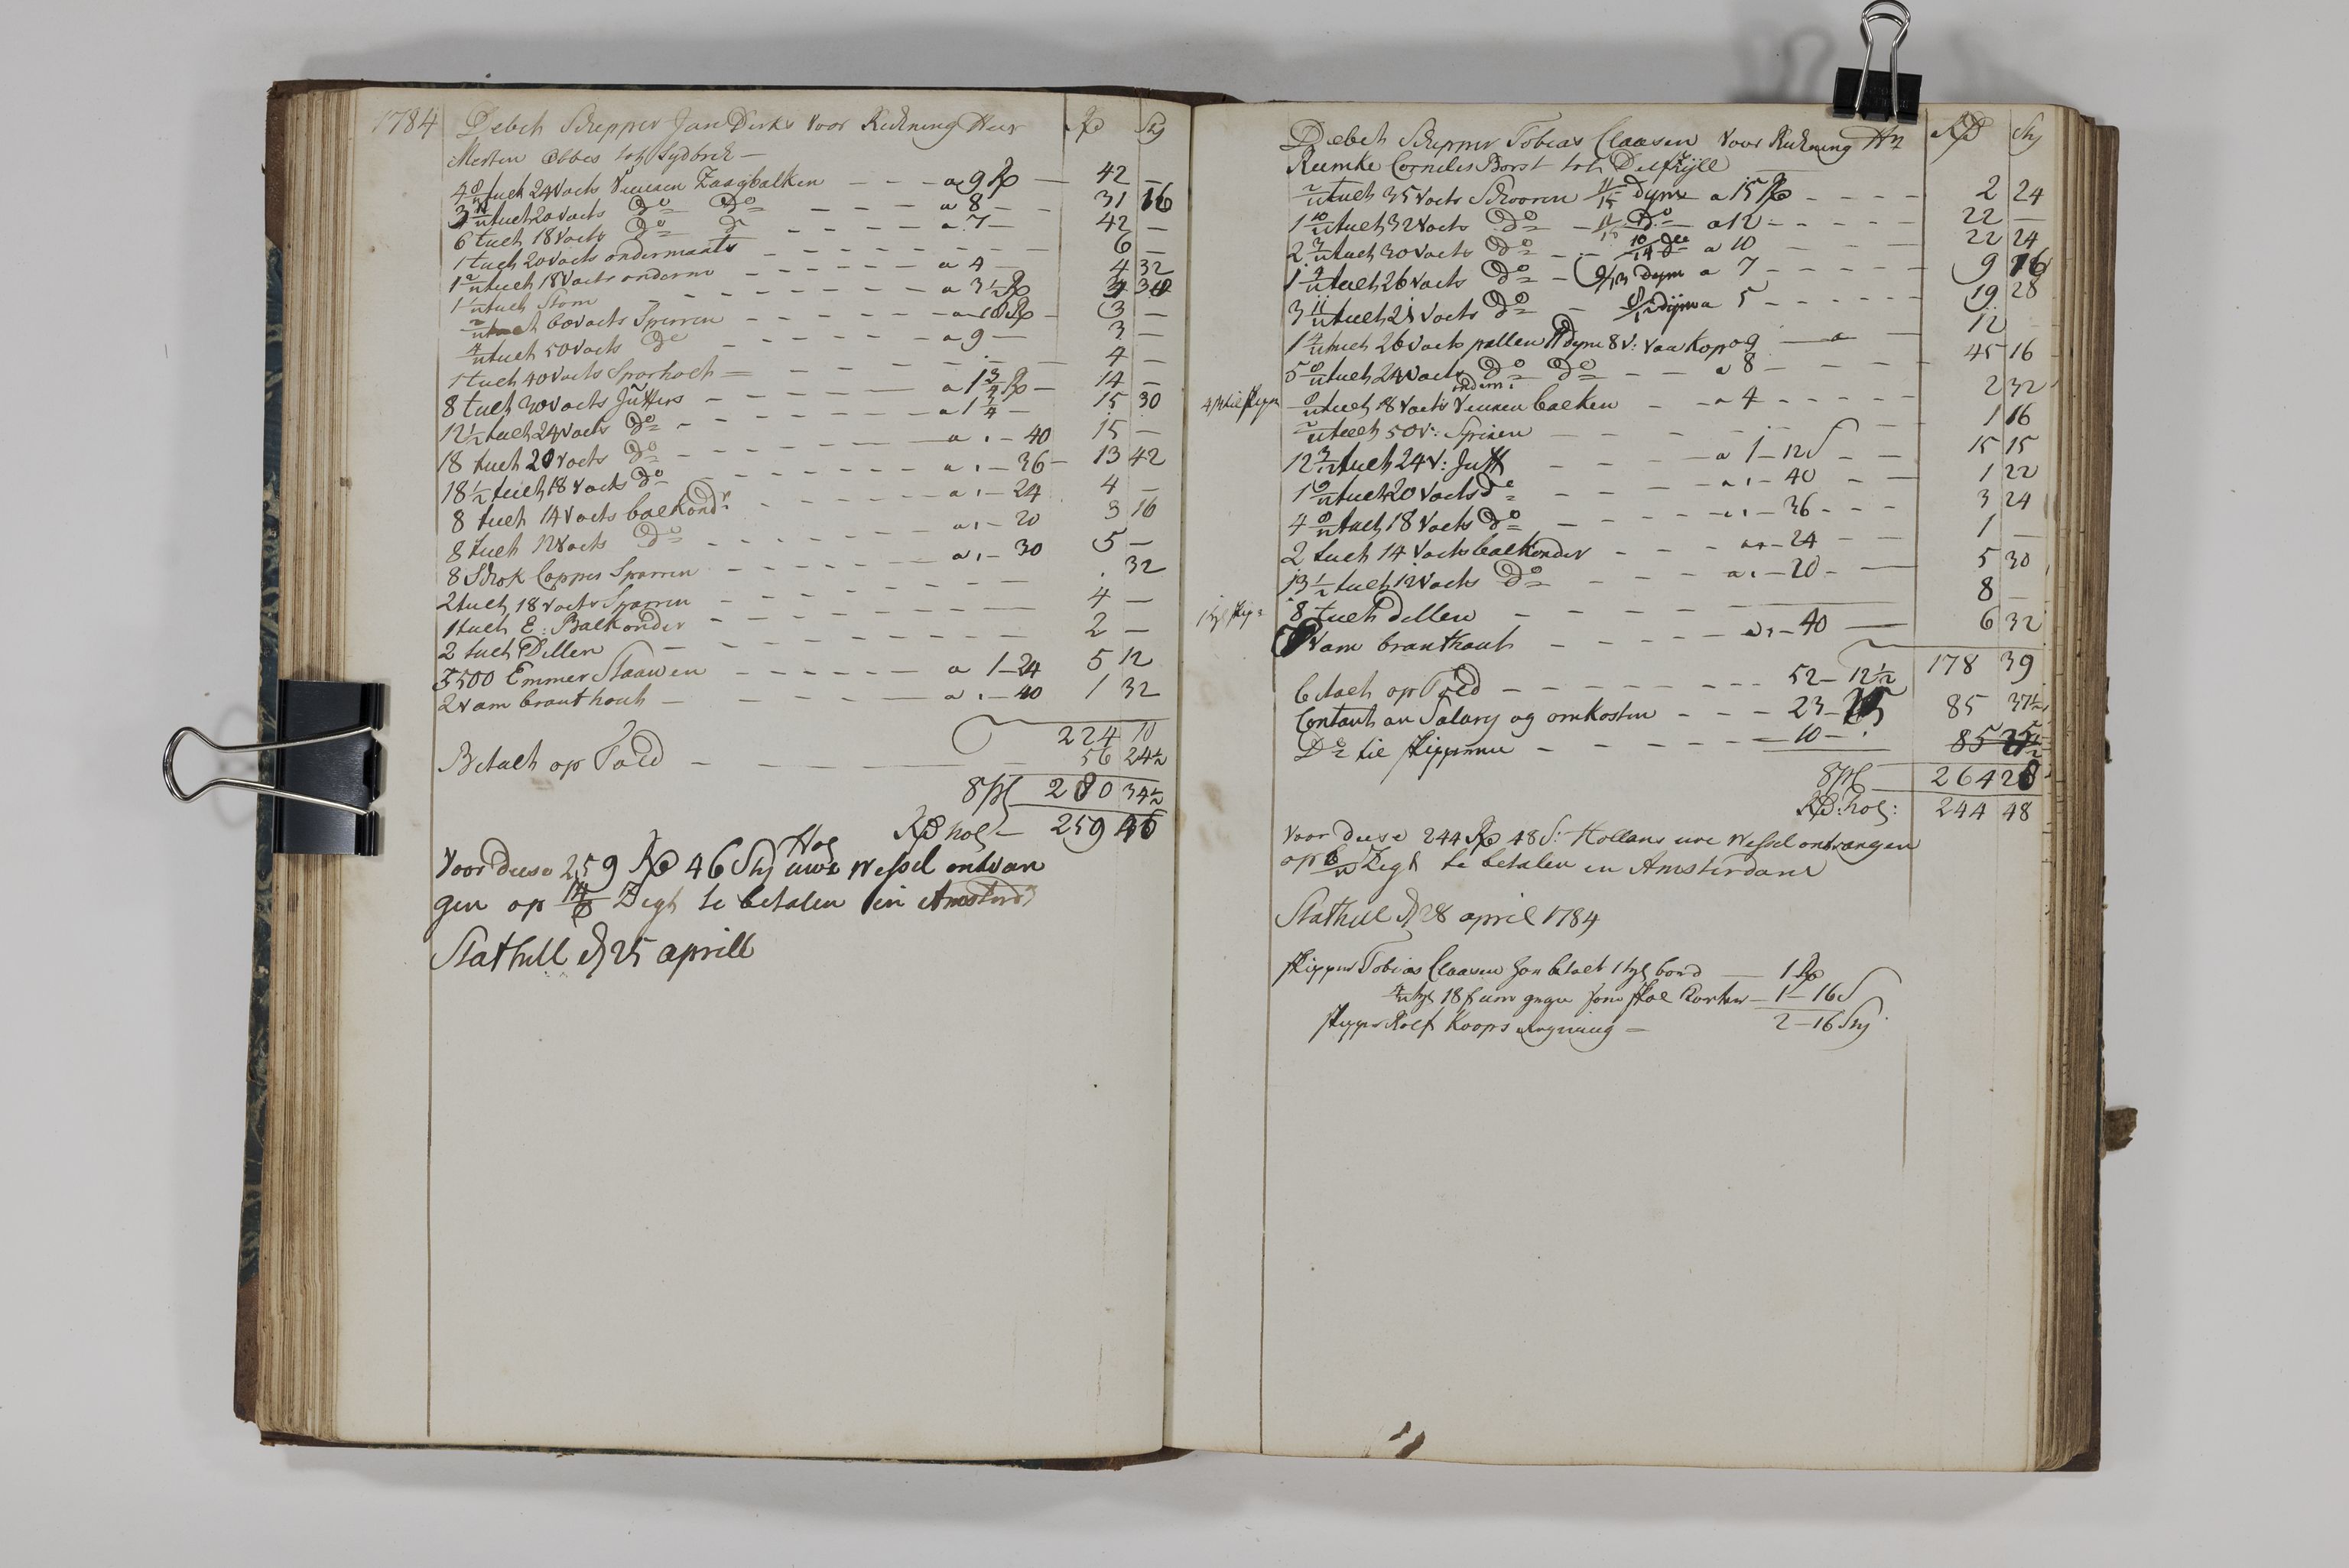 1784 Debeth Schepper Jan Dirks Voor Reckening Heer Rd Stj
Merten Abbes toh Sydbrek —
4 8/12 tueh 24 Voets Vuuren Zaagbalken — — — a 9 Rd — 42 —
3 11/12 tueh 20 Voets Do Do — — — — a 8 — — 31 16
6 tueh 18 Voets Do Do — — — — — a 7 — 42 —
1 tueh 20 Voets ondermaats — — — — — — — — 6 —
1 2/12 tueh 18 Voets onderm — — — — — — a 4 — 4 32
1 1/12 tueh Stom — — — — — — — a 3 1/2 Rd 3 38
2/12 tueh 60 Voets Sperren — — — — — — a 18 Rd — 3 —
4/12 tueh 50 Voets Do — — — — — — a 9 — 3 —
1 tueh 40 Voets Sparhoeh — — — — — — — — 4 —
8 tueh 30 Voets Juffers — — — — — — a 1 3/4 Rd — 14 —
12 1/2 tueh 24 Voets Do — — — — — — a 1 1/4 — 15 30
18 tueh 20 Voets Do — — — — — — a : — 40 15 —
18 1/2 tueh 18 Voets Do — — — — — — a : — 36 — 13 42
8 tueh 14 Voets balkondr — — — — — a : — 24 4 —
8 tueh 12 Voets Do — — — — — — a : — 20 3 16
8 Schok Copper Sparren — — — — — — a : — 30 5 —
2 tueh 18 voets Sparren — — — — — — — . 32
1 tueh E: Balkonder — — — — — — — — 4 —
2 tueh Dellen — — — — — — — — 2 —
3500 Emmer Staauen — — — — — a 1 — 24 5 12
2 vam branthouh — — — — — a : — 40 1 32
224 10
Betaeh op Told — — — — 56 24 1/2
Spl 280 34 1/2
Rd hol — 259 46
Voor deese 259 Rd 46 Stj Hol uwe Wessel ontvan
gen op 14/d Zegt te betalen in Amsterd
Stathell d 25 aprill
Debeth Schepper Tobias Claasen Voor Reckening Hr Rd Stj
Remke Cornelis Borst toh Delfzyll
2/12 tueh 35 Voets Schooren 11/15 dym a 15 Rd — — — — 2 24
1 10/12 tueh 32 Voets Do — Do — a 12 — — — — 22 —
2 3/12 tueh 30 Voets Do — — 10/14 Do a 10 — — — 22 24
1 4/12 tueh 26 Voets Do — 9/13 dym a 7 — — — — 9 16
3 11/12 tueh 21 Voets Do — dijm a 5 — — — — 19 28
1 4/12 tueh 26 Voets pallen 11 dym 8 V: van Kop a 9 — 12
5 8/12 tueh 24 Voets Do Do — — a 8 — — — 45 16
8/12 tueh 18 Voets Vuuren onderm: balken — — a 4 — — — — — 2 32
2/12 tueh 50 V: Spiren — — — — — — — 1 16
12 3/12 tueh 24 V: Juff — — — a 1 — 12 S — — 15 15
1 9/12 tueh 20 Voets Do — — — — a : — 40 — — 1 22
4 8/12 tueh 18 Voets Do — — — — a : — 36 — — — 3 24
2 tueh 14 Voets balkonder — — — a : — 24 — — 1 —
13 1/2 tueh 12 Voets Do — — — — a : — 20 — — 5 30
8 tueh Dellen — — — — — — — 8 —
vam branthouh — — — — a : — 40 — 6 32
178 39
betaeh op Told — — — — — — 52 — 12 1/2
Contanh an Salary og omkosten — — — 23 — 25 85 37 1/2
Do til skipperen — — — — — 10 — :
Spl 264 28
Rd: hol: 244 48
Voor deese 244 Rd 48 S: Hollans uwe Wessel ontvangen
op 6/12 Zegt te betalen in Amsterdam
Stathell d 28 april 1784
skipper Tobias Claasen han betaelt 1 tyl bord — 1 Rd
4/12 tyl 18 — 1 — 16 S
skipper Rolf Koops regning — 2 — 16 Stj